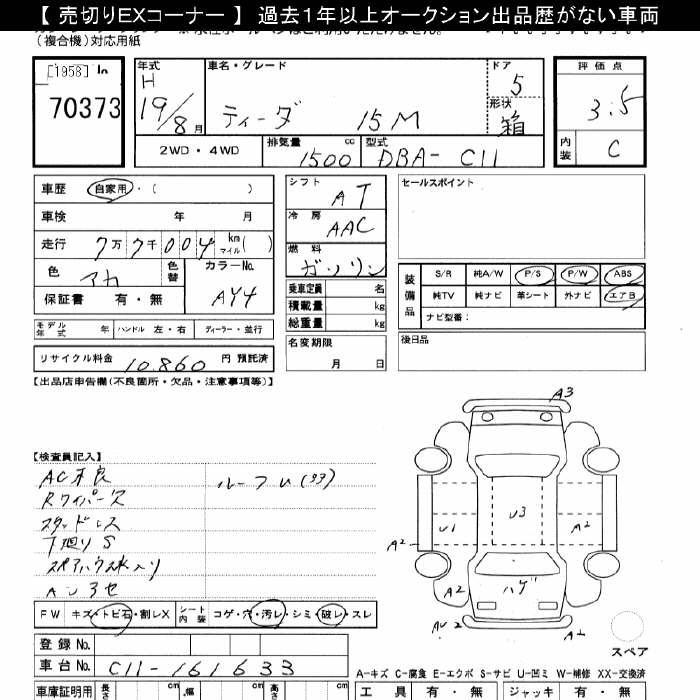 【 売切りEXコーナー 】 過去1年以上オークション出品歴がない車両
（複合機）対応用紙
[1958]
70373
年式
H
19/8月
車名・グレード
ティーダ 15M
ドア
5
形状
箱
評価点
3.5
内装
C
2WD・4WD
排気量
1500 cc
型式
DBA- C11
車歴 自家用・( )
車検 年 月
走行 7万7千004 km マイル( )
色 アカ
色替
カラーNo.
AY4
保証書 有・無
モデル年式 年
ハンドル 左・右
ディーラー・並行
リサイクル料金 10.860 円 預託済
シフト
AT
冷房
AAC
燃料
ガソリン
乗車定員 名
積載量 kg
総重量 kg
名変期限
月 日
セールスポイント
装備品
S/R 純A/W P/S P/W ABS
純TV 純ナビ 革シート 外ナビ エアB
ナビ型番：
後日品
【出品店申告欄(不良箇所・欠品・注意事項等)】
【検査員記入】
AC不良
Rワイパー欠
スタッドレス
下廻りS
ルーフU(33)
A3
U1
U3
A2
A2
ハゲ
A2
A2
FW キズ・トビ石・割レX
シート内装 コゲ・穴・汚レ・シミ・破レ・スレ
スペア
登録No.
車台No. C11-161633
A−キズ C−腐食 E−エクボ S−サビ U−凹ミ W−補修 XX−交換済
車庫証明用 長さ cm 幅 cm 高さ cm
工具 有・無 ジャッキ 有・無